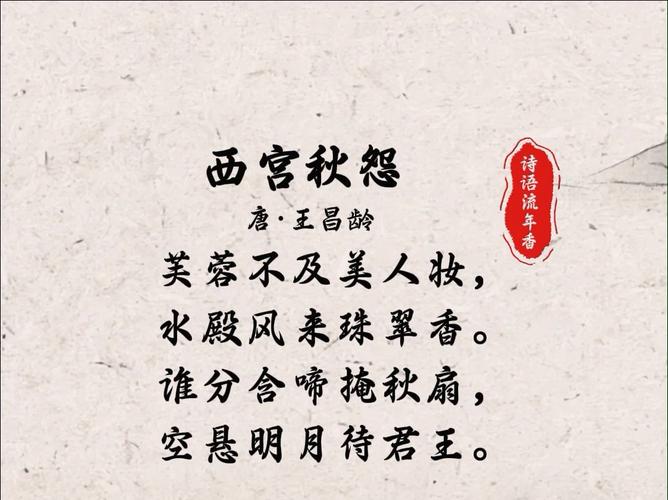 西宫秋怨
唐·王昌龄
芙蓉不及美人妆，
水殿风来珠翠香。
谁分含啼掩秋扇，
空悬明月待君王。
诗语流年香